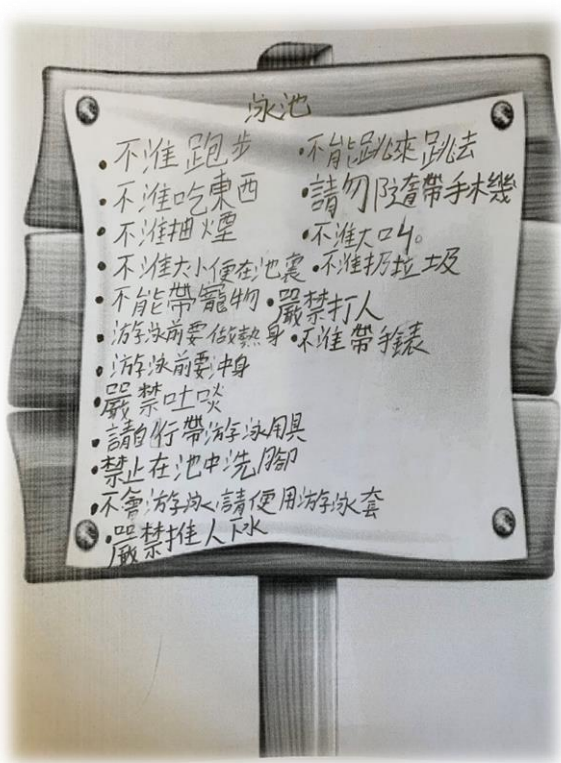 泳池
不准跑步
不准吃東西
不准抽煙
不准大小便在池裏
不能帶寵物
游泳前要做熱身
游泳前要沖身
嚴禁吐啖
請自行帶游泳用具
禁止在池中洗腳
不會游泳請使用游泳套
嚴禁推人下水
不能跳來跳去
請勿隨帶手機
不准大叫。
不准扔垃圾
嚴禁打人
不准帶手錶